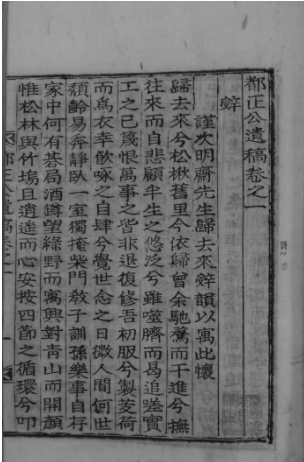 都正公遺稿卷之一
辭
謹次明齋先生歸去來辭韻以寓此懷
歸去來兮松楸舊里今依歸曾余馳騖而干進兮撫
往來而自悲顧半生之悠泛兮雖噬臍而易追嗟實
工之已蔑恨萬事之皆非退復修吾初服兮製芰荷
而爲衣幸飮啄之自肆兮覺世念之日微人間何世
頹齡易奔靜臥一室獨掩柴門敎子訓孫樂事自存
家中何有碁局酒罇望綠野而寓興對靑山而開顔
惟松林與竹塢且逍遙而心安按四節之循環兮叩
都正公遺稿卷之一
一